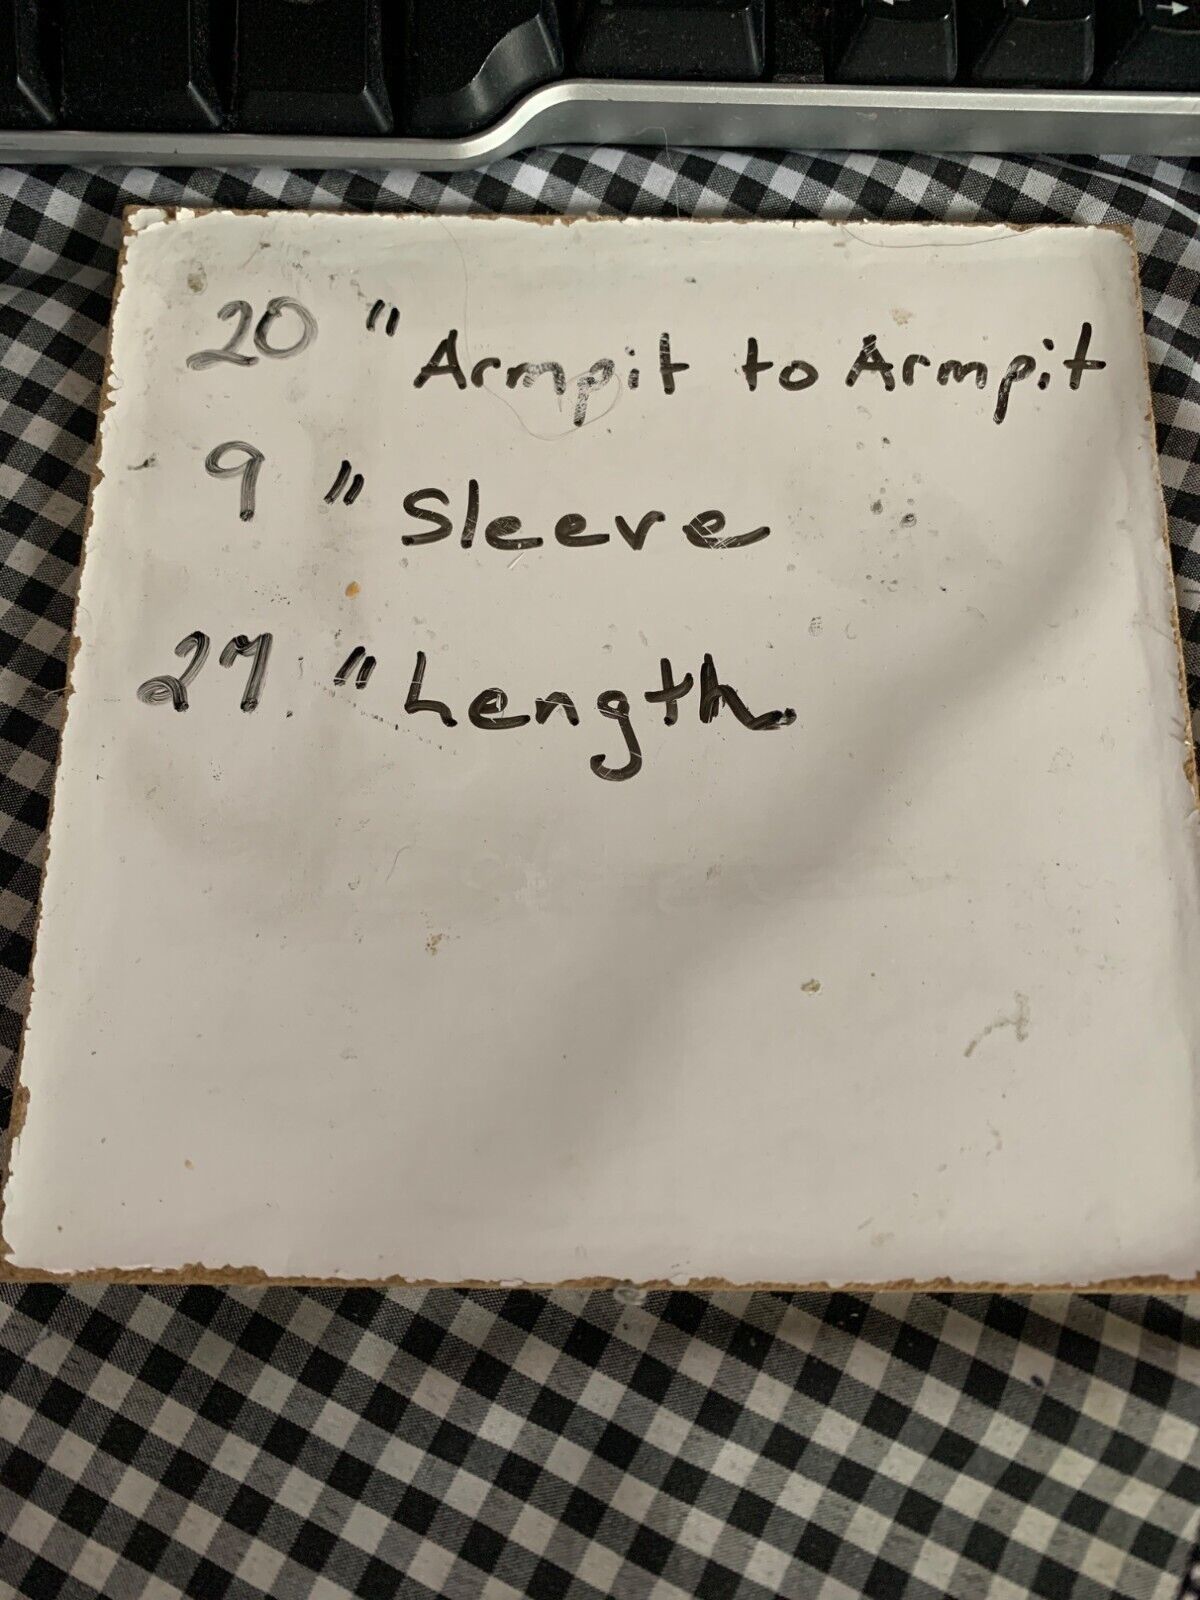 20 " Armpit to Armpit
9 " Sleeve
27 " Length